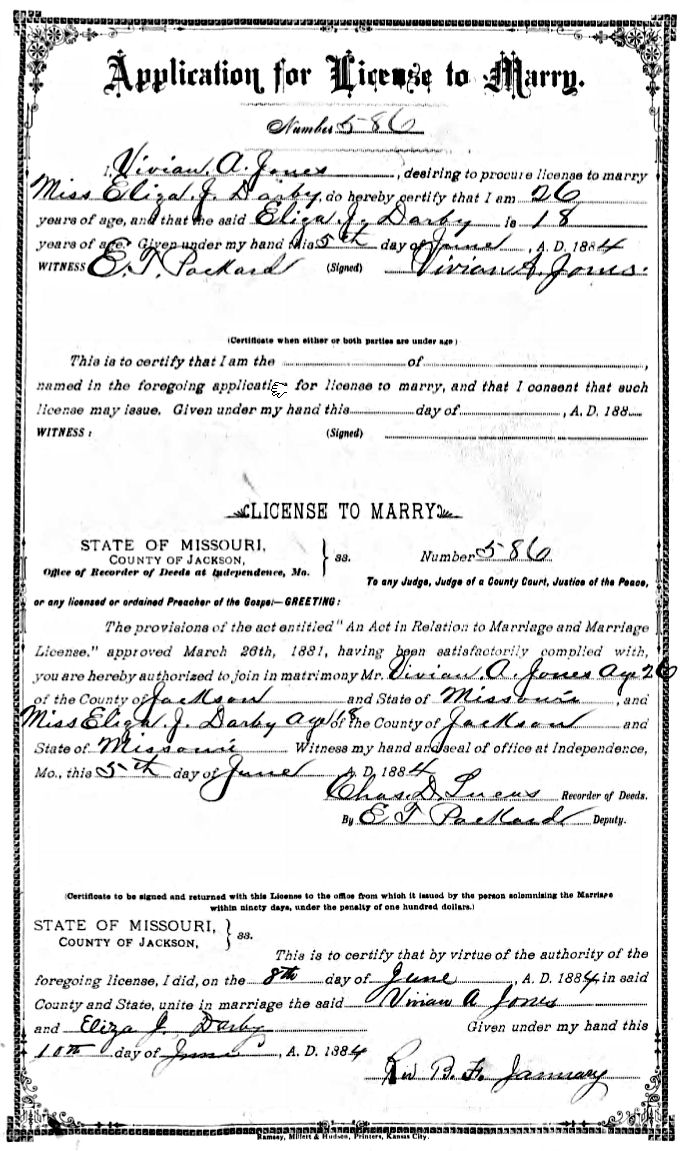 Application for License to Marry.
Number 586
I, Vivian. A. Jones, desiring to procure license to marry
Miss Eliza. J. Darby, do hereby certify that I am 26
years of age, and that the said Eliza. J. Darby is 18
years of age. Given under my hand this 5th day of June, A. D. 1884
WITNESS E. T. Packard (Signed) Vivian A. Jones.
(Certificate when either or both parties are under age)
This is to certify that I am the of ,
named in the foregoing application for license to marry, and that I consent that such
license may issue. Given under my hand this day of , A. D. 188
WITNESS: (Signed)
LICENSE TO MARRY
STATE OF MISSOURI,
COUNTY OF JACKSON, } ss. Number 586
Office of Recorder of Deeds at Independence, Mo.
To any Judge, Judge of a County Court, Justice of the Peace,
or any licensed or ordained Preacher of the Gospel—GREETING:
The provisions of the act entitled "An Act in Relation to Marriage and Marriage
License." approved March 26th, 1881, having been satisfactorily complied with,
you are hereby authorized to join in matrimony Mr. Vivian A. Jones Age 26
of the County of Jackson and State of Missouri, and
Miss Eliza. J. Darby age 18 of the County of Jackson and
State of Missouri Witness my hand and seal of office at Independence,
Mo., this 5th day of June A. D. 1884
Chas. D. Lucas Recorder of Deeds.
By E T Packard Deputy.
(Certificate to be signed and returned with this License to the office from which it issued by the person solemnizing the Marriage
within ninety days, under the penalty of one hundred dollars.)
STATE OF MISSOURI,
COUNTY OF JACKSON, } ss.
This is to certify that by virtue of the authority of the
foregoing license, I did, on the 8th day of June, A. D. 1884 in said
County and State, unite in marriage the said Vivian A Jones
and Eliza J. Darby Given under my hand this
10th day of June, A. D. 1884
Rev B. F. January
Ramsey, Millett & Hudson, Printers, Kansas City.